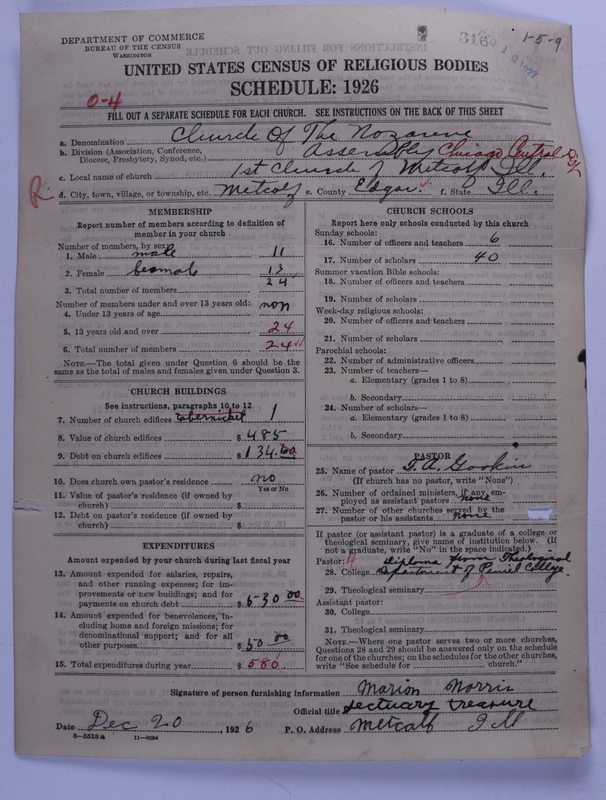 DEPARTMENT OF COMMERCE
BUREAU OF THE CENSUS
WASHINGTON
316
1-5-9
UNITED STATES CENSUS OF RELIGIOUS BODIES
SCHEDULE: 1926
0-4
FILL OUT A SEPARATE SCHEDULE FOR EACH CHURCH. SEE INSTRUCTIONS ON THE BACK OF THIS SHEET
a. Denomination Church Of The Nozarene
b. Division (Association, Conference, Diocese, Presbytery, Synod, etc.) Assembly Chicago Central
c. Local name of church 1st Church of Metcalf Ill,
d. City, town, village, or township, etc. Metcalf e. County Edgar f. State Ill.
MEMBERSHIP
Report number of members according to definition of member in your church
Number of members, by sex:
1. Male male 11
2. Female 13
3. Total number of members 24
Number of members under and over 13 years old:
4. Under 13 years of age non
5. 13 years old and over 24
6. Total number of members 24
NOTE.—The total given under Question 6 should be the same as the total of males and females given under Question 3.
CHURCH BUILDINGS
See instructions, paragraphs 10 to 12
7. Number of church edifices 1
8. Value of church edifices $ 485
9. Debt on church edifices $ 134.60
10. Does church own pastor's residence no
Yes or No
11. Value of pastor's residence (if owned by church) $
12. Debt on pastor's residence (if owned by church) $
EXPENDITURES
Amount expended by your church during last fiscal year
13. Amount expended for salaries, repairs, and other running expenses; for improvements or new buildings; and for payments on church debt $ 530 00
14. Amount expended for benevolences, including home and foreign missions; for denominational support; and for all other purposes $ 50 00
15. Total expenditures during year $ 580
CHURCH SCHOOLS
Report here only schools conducted by this church
Sunday schools:
16. Number of officers and teachers 6
17. Number of scholars 40
Summer vacation Bible schools:
18. Number of officers and teachers
19. Number of scholars
Week-day religious schools:
20. Number of officers and teachers
21. Number of scholars
Parochial schools:
22. Number of administrative officers
23. Number of teachers—
a. Elementary (grades 1 to 8)
b. Secondary
24. Number of scholars—
a. Elementary (grades 1 to 8)
b. Secondary
PASTOR
25. Name of pastor
(If church has no pastor, write "None")
26. Number of ordained ministers, if any, employed as assistant pastors none
27. Number of other churches served by the pastor or his assistants none
If pastor (or assistant pastor) is a graduate of a college or theological seminary, give name of institution below. (If not a graduate, write "No" in the space indicated.)
Pastor: diploma from Theological
28. College Department of Peniel College.
29. Theological seminary
Assistant pastor:
30. College
31. Theological seminary
NOTE.—Where one pastor serves two or more churches, Questions 28 and 29 should be answered only on the schedule for one of the churches; on the schedules for the other churches, write "See schedule for church."
Signature of person furnishing information Marion Norris
Official title sectuary treasure
Date Dec 20, 1926 P. O. Address Metcalf Ill
8-5518 a 11-9084